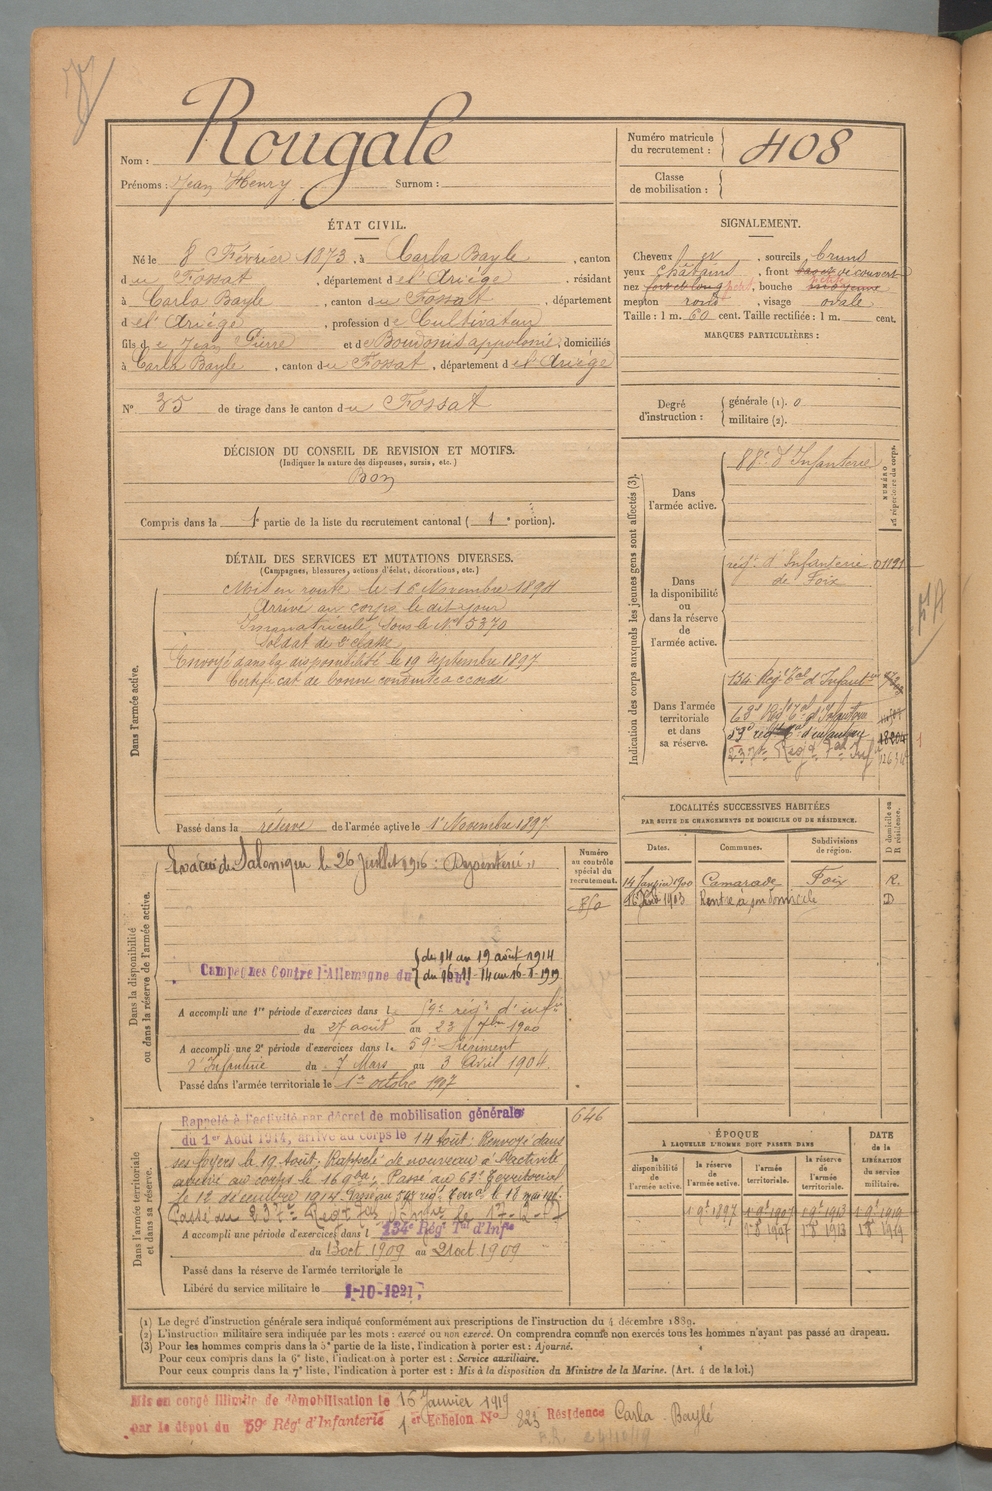 Nom : Rougale
Prénoms : Jean Henry Surnom :
Numéro matricule du recrutement : 408
Classe de mobilisation :
ÉTAT CIVIL.
Né le 8 Février 1873, à Carla Bayle, canton
du Fossat, département de l'Ariège, résidant
à Carla Bayle, canton du Fossat, département
d e l'Ariège, profession de Cultivateur
fils de Jean Pierre et de Boudonis appolonie, domiciliés
à Carla Bayle, canton du Fossat, département de l'Ariège
N° 35 de tirage dans le canton du Fossat
SIGNALEMENT.
Cheveux sourcils bruns
yeux châtains, front recouvert
nez fort et long petit, bouche moyenne petite
menton rond, visage ovale
Taille : 1 m. 60 cent. Taille rectifiée : 1 m. cent.
MARQUES PARTICULIÈRES :
Degré d'instruction : générale (1). 0
militaire (2).
DÉCISION DU CONSEIL DE REVISION ET MOTIFS.
(Indiquer la nature des dispenses, sursis, etc.)
Bon
Compris dans la 1e partie de la liste du recrutement cantonal ( 1 e portion).
DÉTAIL DES SERVICES ET MUTATIONS DIVERSES.
(Campagnes, blessures, actions d'éclat, décorations, etc.)
Dans l'armée active.
Mis en route le 16 Novembre 1894
Arrivé au corps le dit jour
Immatriculé sous le N° 5370
Soldat de 2e classe
Envoyé dans la disponibilité le 19 Septembre 1897
Certificat de bonne conduite accordé
Passé dans la réserve de l'armée active le 1er Novembre 1897
Indication des corps auxquels les jeunes gens sont affectés (3).
NUMÉRO au répertoire du corps.
Dans l'armée active.
88e d'Infanterie
Dans la disponibilité ou dans la réserve de l'armée active.
régt d'Infanterie
de Foix
Dans l'armée territoriale et dans sa réserve.
134 Régt Tal d'Infanterie
63e Régt Tal d'Infanterie
59e régt d'infanterie
237e Regt Tal Inf
Dans la disponibilité ou dans la réserve de l'armée active.
Evacué de Salonique le 26 Juillet 1916 : Dysenterie
Numéro au contrôle spécial du recrutement.
850
Campagnes Contre l'Allemagne du
du 14 au 19 août 1914
du 16-11-14 au 16-1-1919
A accompli une 1re période d'exercices dans le 59e régt d'inf
du 27 août au 23 7bre 1900
A accompli une 2e période d'exercices dans le 59e Régiment
d'Infanterie du 7 Mars au 3 Avril 1904.
Passé dans l'armée territoriale le 1er octobre 1907
LOCALITÉS SUCCESSIVES HABITÉES
PAR SUITE DE CHANGEMENTS DE DOMICILE OU DE RÉSIDENCE.
Dates. Communes. Subdivisions de région. D domicile ou R résidence.
14 Janvier 1900 Camarade Foix R.
1903 Rentré à son domicile D
Dans l'armée territoriale et dans sa réserve.
Rappelé à l'activité par décret de mobilisation générale
du 1er Août 1914, arrivé au corps le 14 Août : Renvoyé dans
ses foyers le 19 Août ; Rappelé de nouveau à l'activité
arrivé au corps le 16 9bre. Passé au 63e Territorial
le 12 décembre 1914
Passé au 237e Regt Tal d'Inf le 17-2-
646
A accompli une période d'exercices dans l 134e Régt Tal d'Infie
du 13 oct 1909 au 21 oct 1909
Passé dans la réserve de l'armée territoriale le
Libéré du service militaire le 1-10-1921.
ÉPOQUE
À LAQUELLE L'HOMME DOIT PASSER DANS
la disponibilité de l'armée active. la réserve de l'armée active. l'armée territoriale. la réserve de l'armée territoriale.
DATE de la LIBÉRATION du service militaire.
1 9t 1897 1 9t 1907 1 9t 1913 1 9t 1919
(1) Le degré d'instruction générale sera indiqué conformément aux prescriptions de l'instruction du 4 décembre 1889.
(2) L'instruction militaire sera indiquée par les mots : exercé ou non exercé. On comprendra comme non exercés tous les hommes n'ayant pas passé au drapeau.
(3) Pour les hommes compris dans la 5e partie de la liste, l'indication à porter est : Ajourné.
Pour ceux compris dans la 6e liste, l'indication à porter est : Service auxiliaire.
Pour ceux compris dans la 7e liste, l'indication à porter est : Mis à la disposition du Ministre de la Marine. (Art. 4 de la loi.)
Mis en congé illimité de démobilisation le 16 Janvier 1919
par le dépôt du 59e Régt d'Infanterie 1er Echelon N° 823 Résidence Carla Baylé